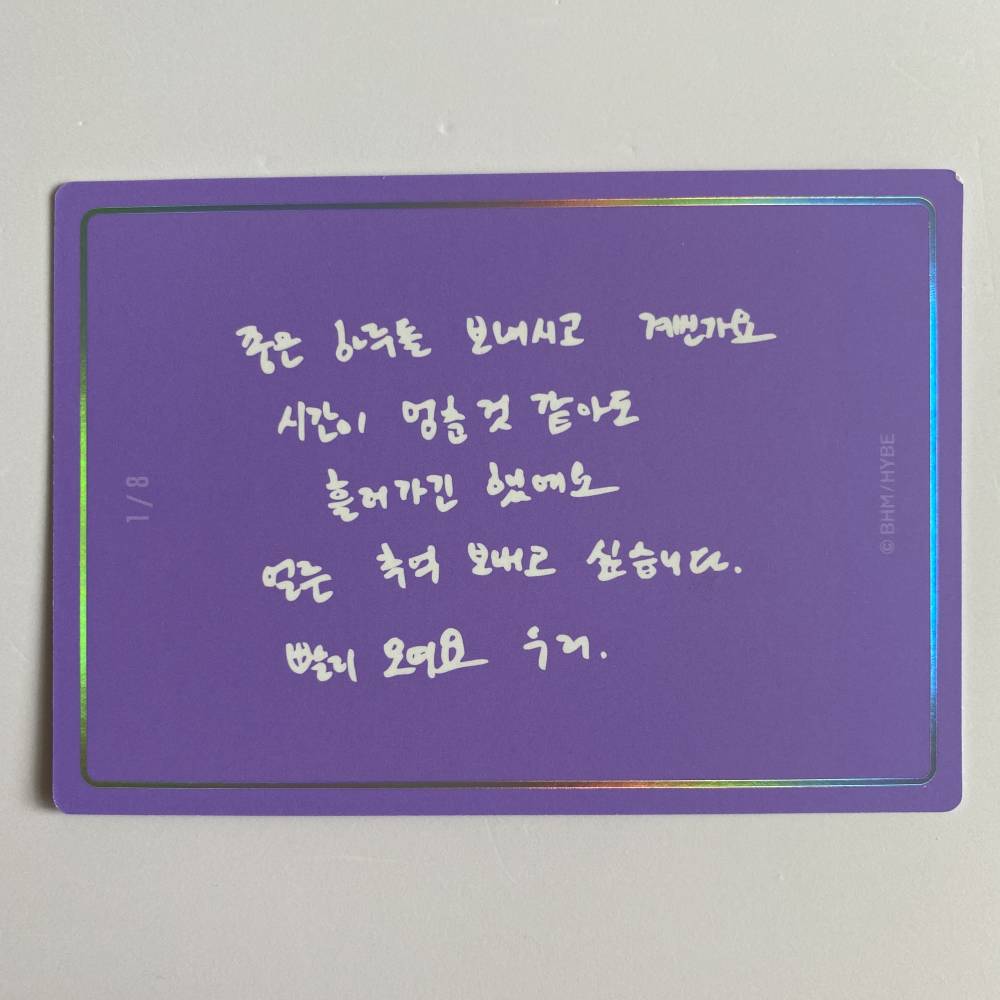 좋은 하루들 보내시고 계신가요
시간이 멈춘것 같아도
흘러가긴 했네요
얼른 추억 보내고 싶습니다.
빨리 모여요 우리.
1/8
© BHM/HYBE